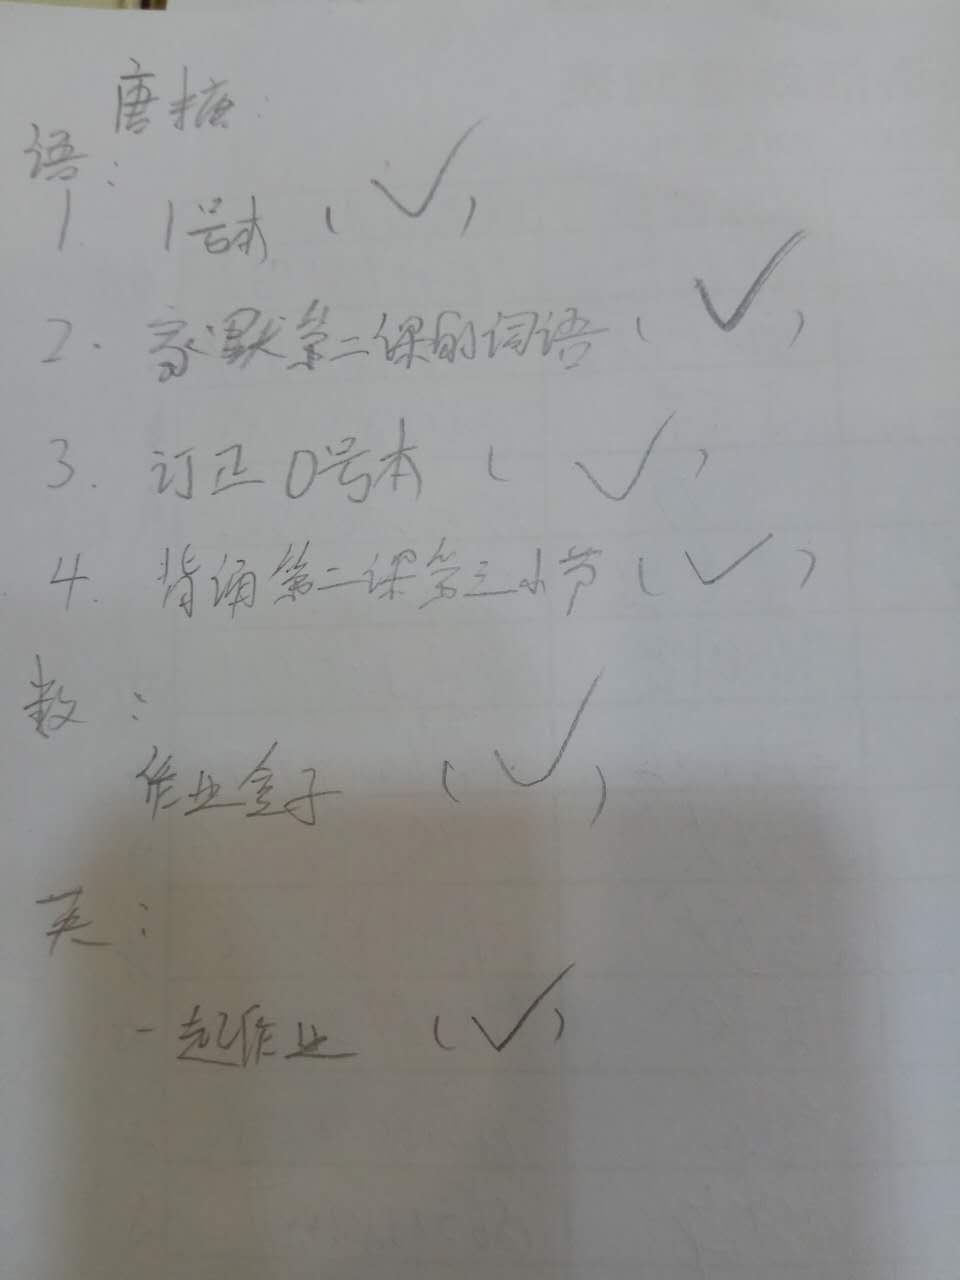 唐
语：
1. 1号本（√）
2. 家默第二课的词语（√）
3. 订正0号本（√）
4. 背诵第二课第三小节（√）
数：
作业盒子（√）
英：
一起作业（√）